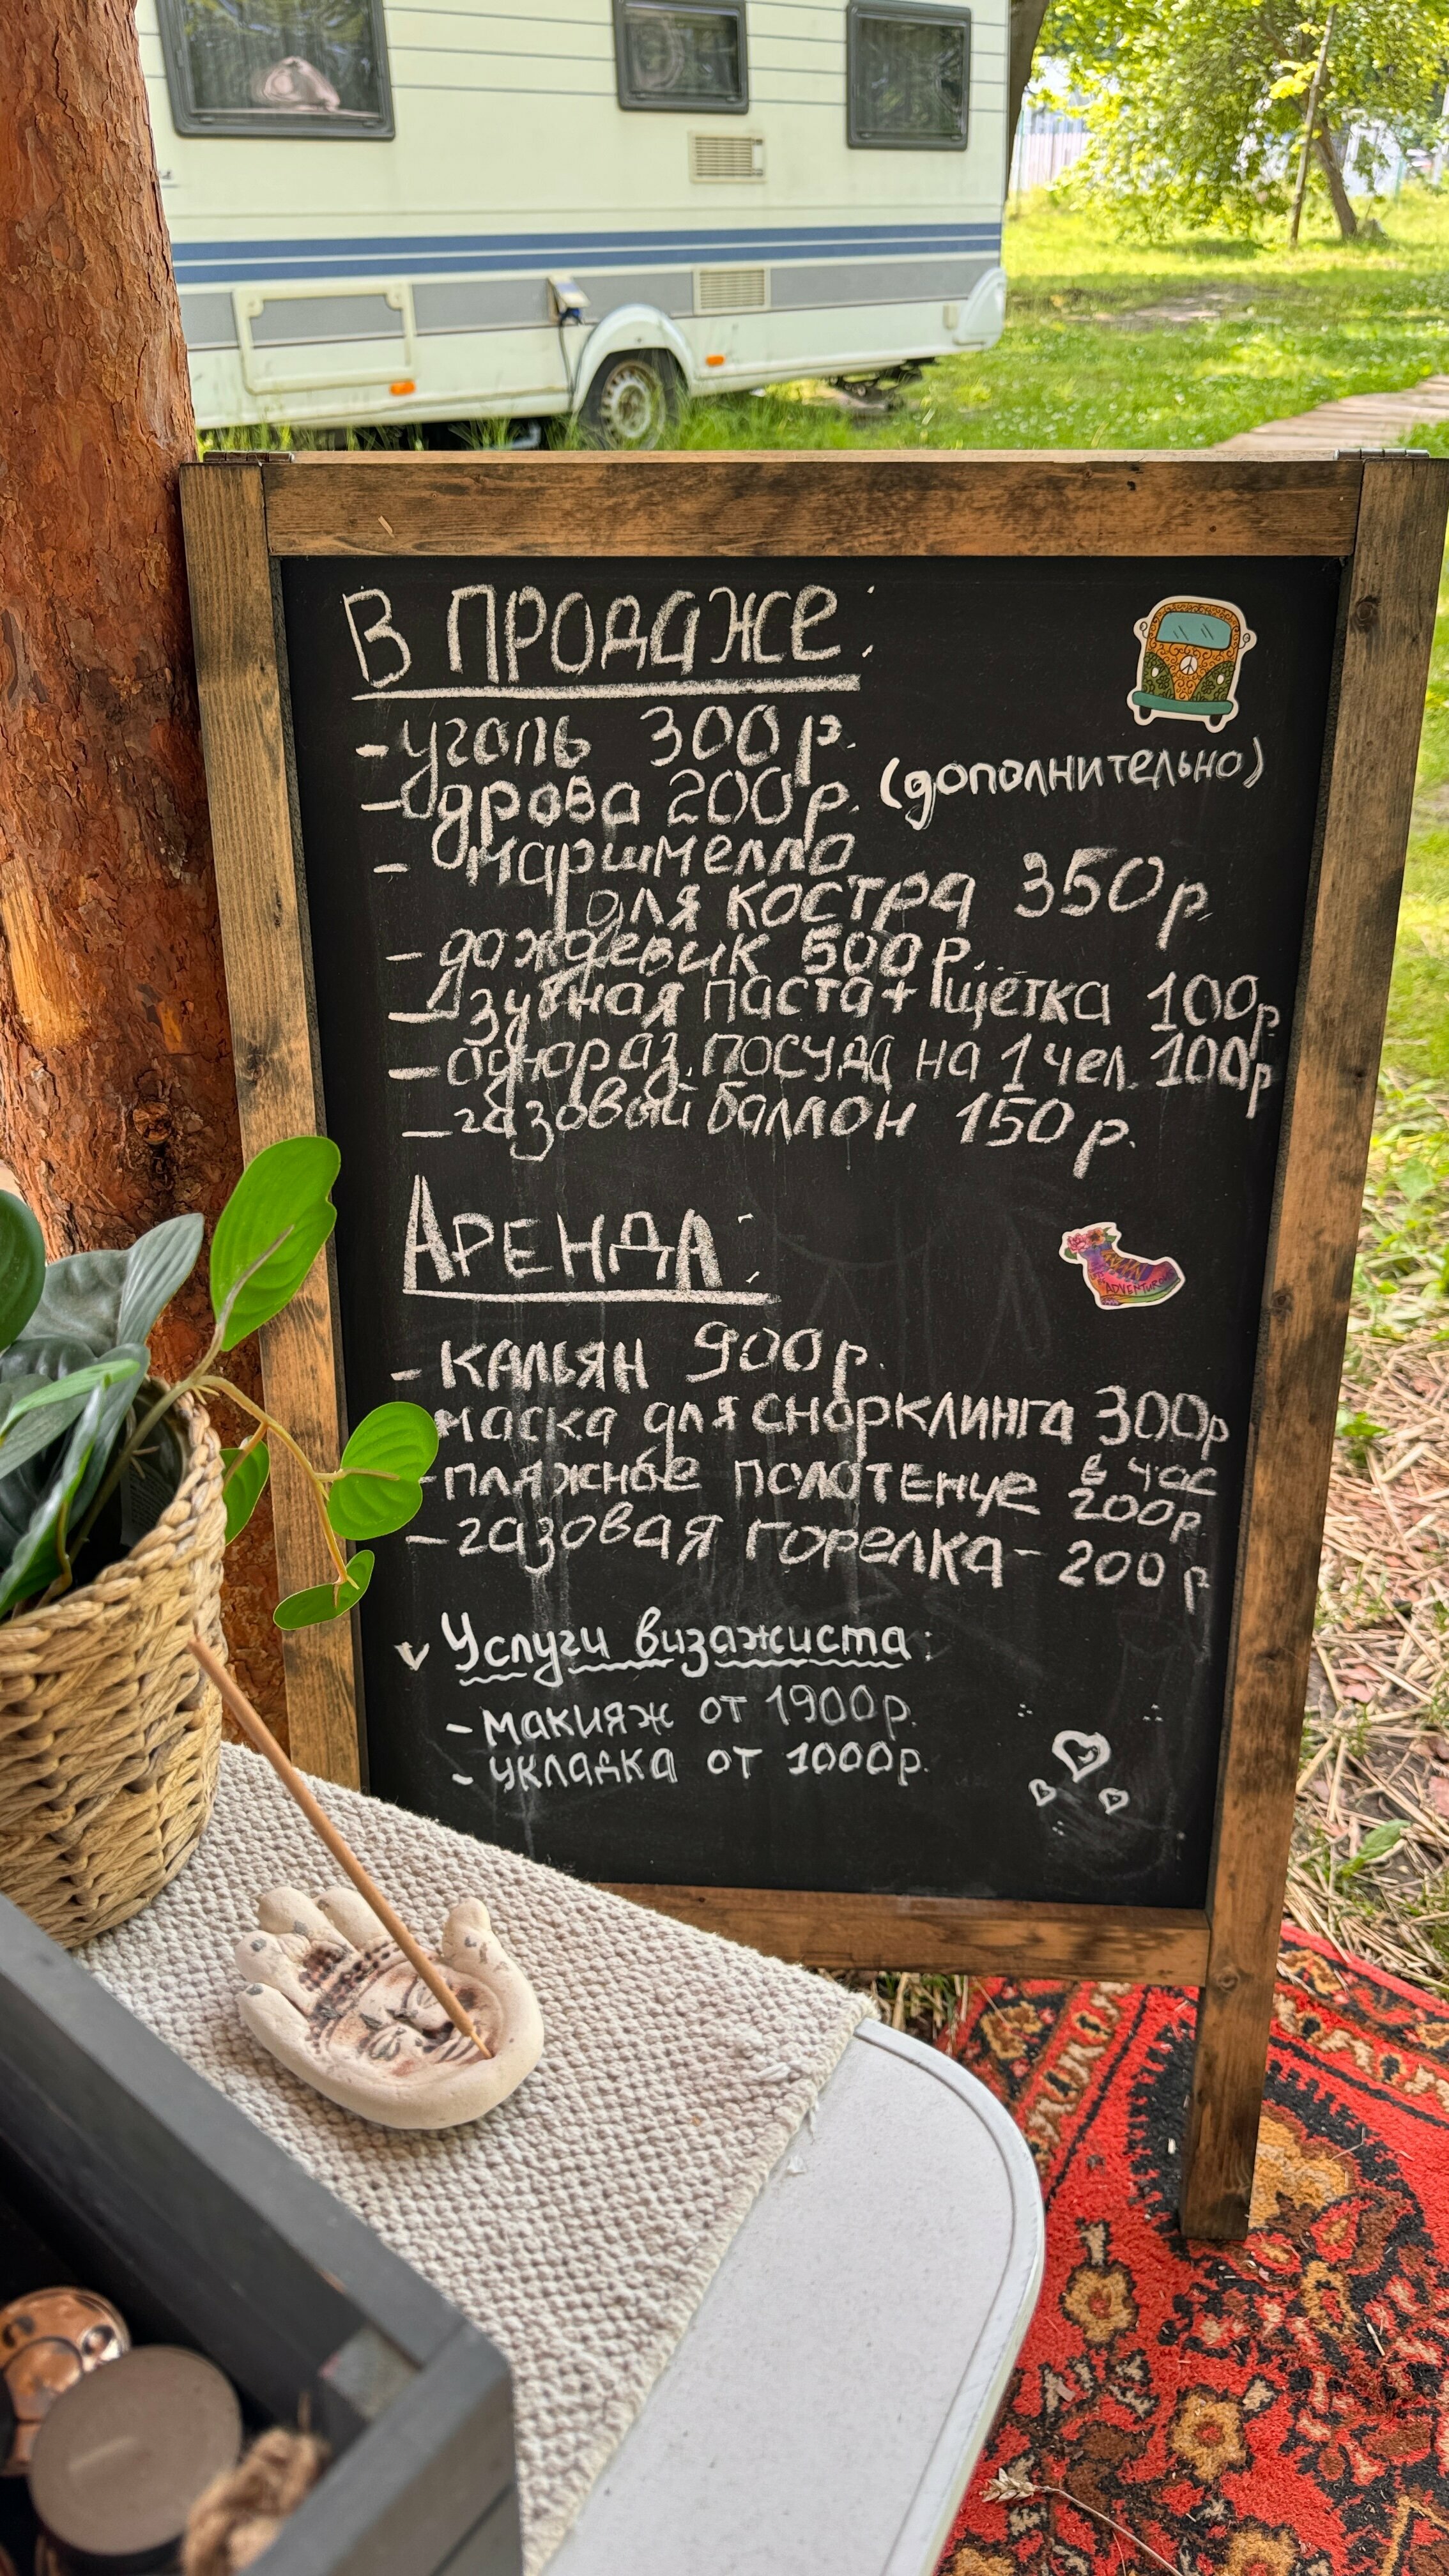 В ПРОДАЖЕ:
- уголь 300р.
- дрова 200р. (дополнительно)
- маршмелло
для костра 350р.
- дождевик 500р.
- зубная паста + щётка 100р
- однораз. посуда на 1 чел. 100р
- газовый баллон 150р.
АРЕНДА:
- кальян 900р.
маска для снорклинга 300р
в час
- пляжное полотенце 200р
- газовая горелка - 200р
Услуги визажиста:
- макияж от 1900р.
- укладка от 1000р.
ADVENTURE